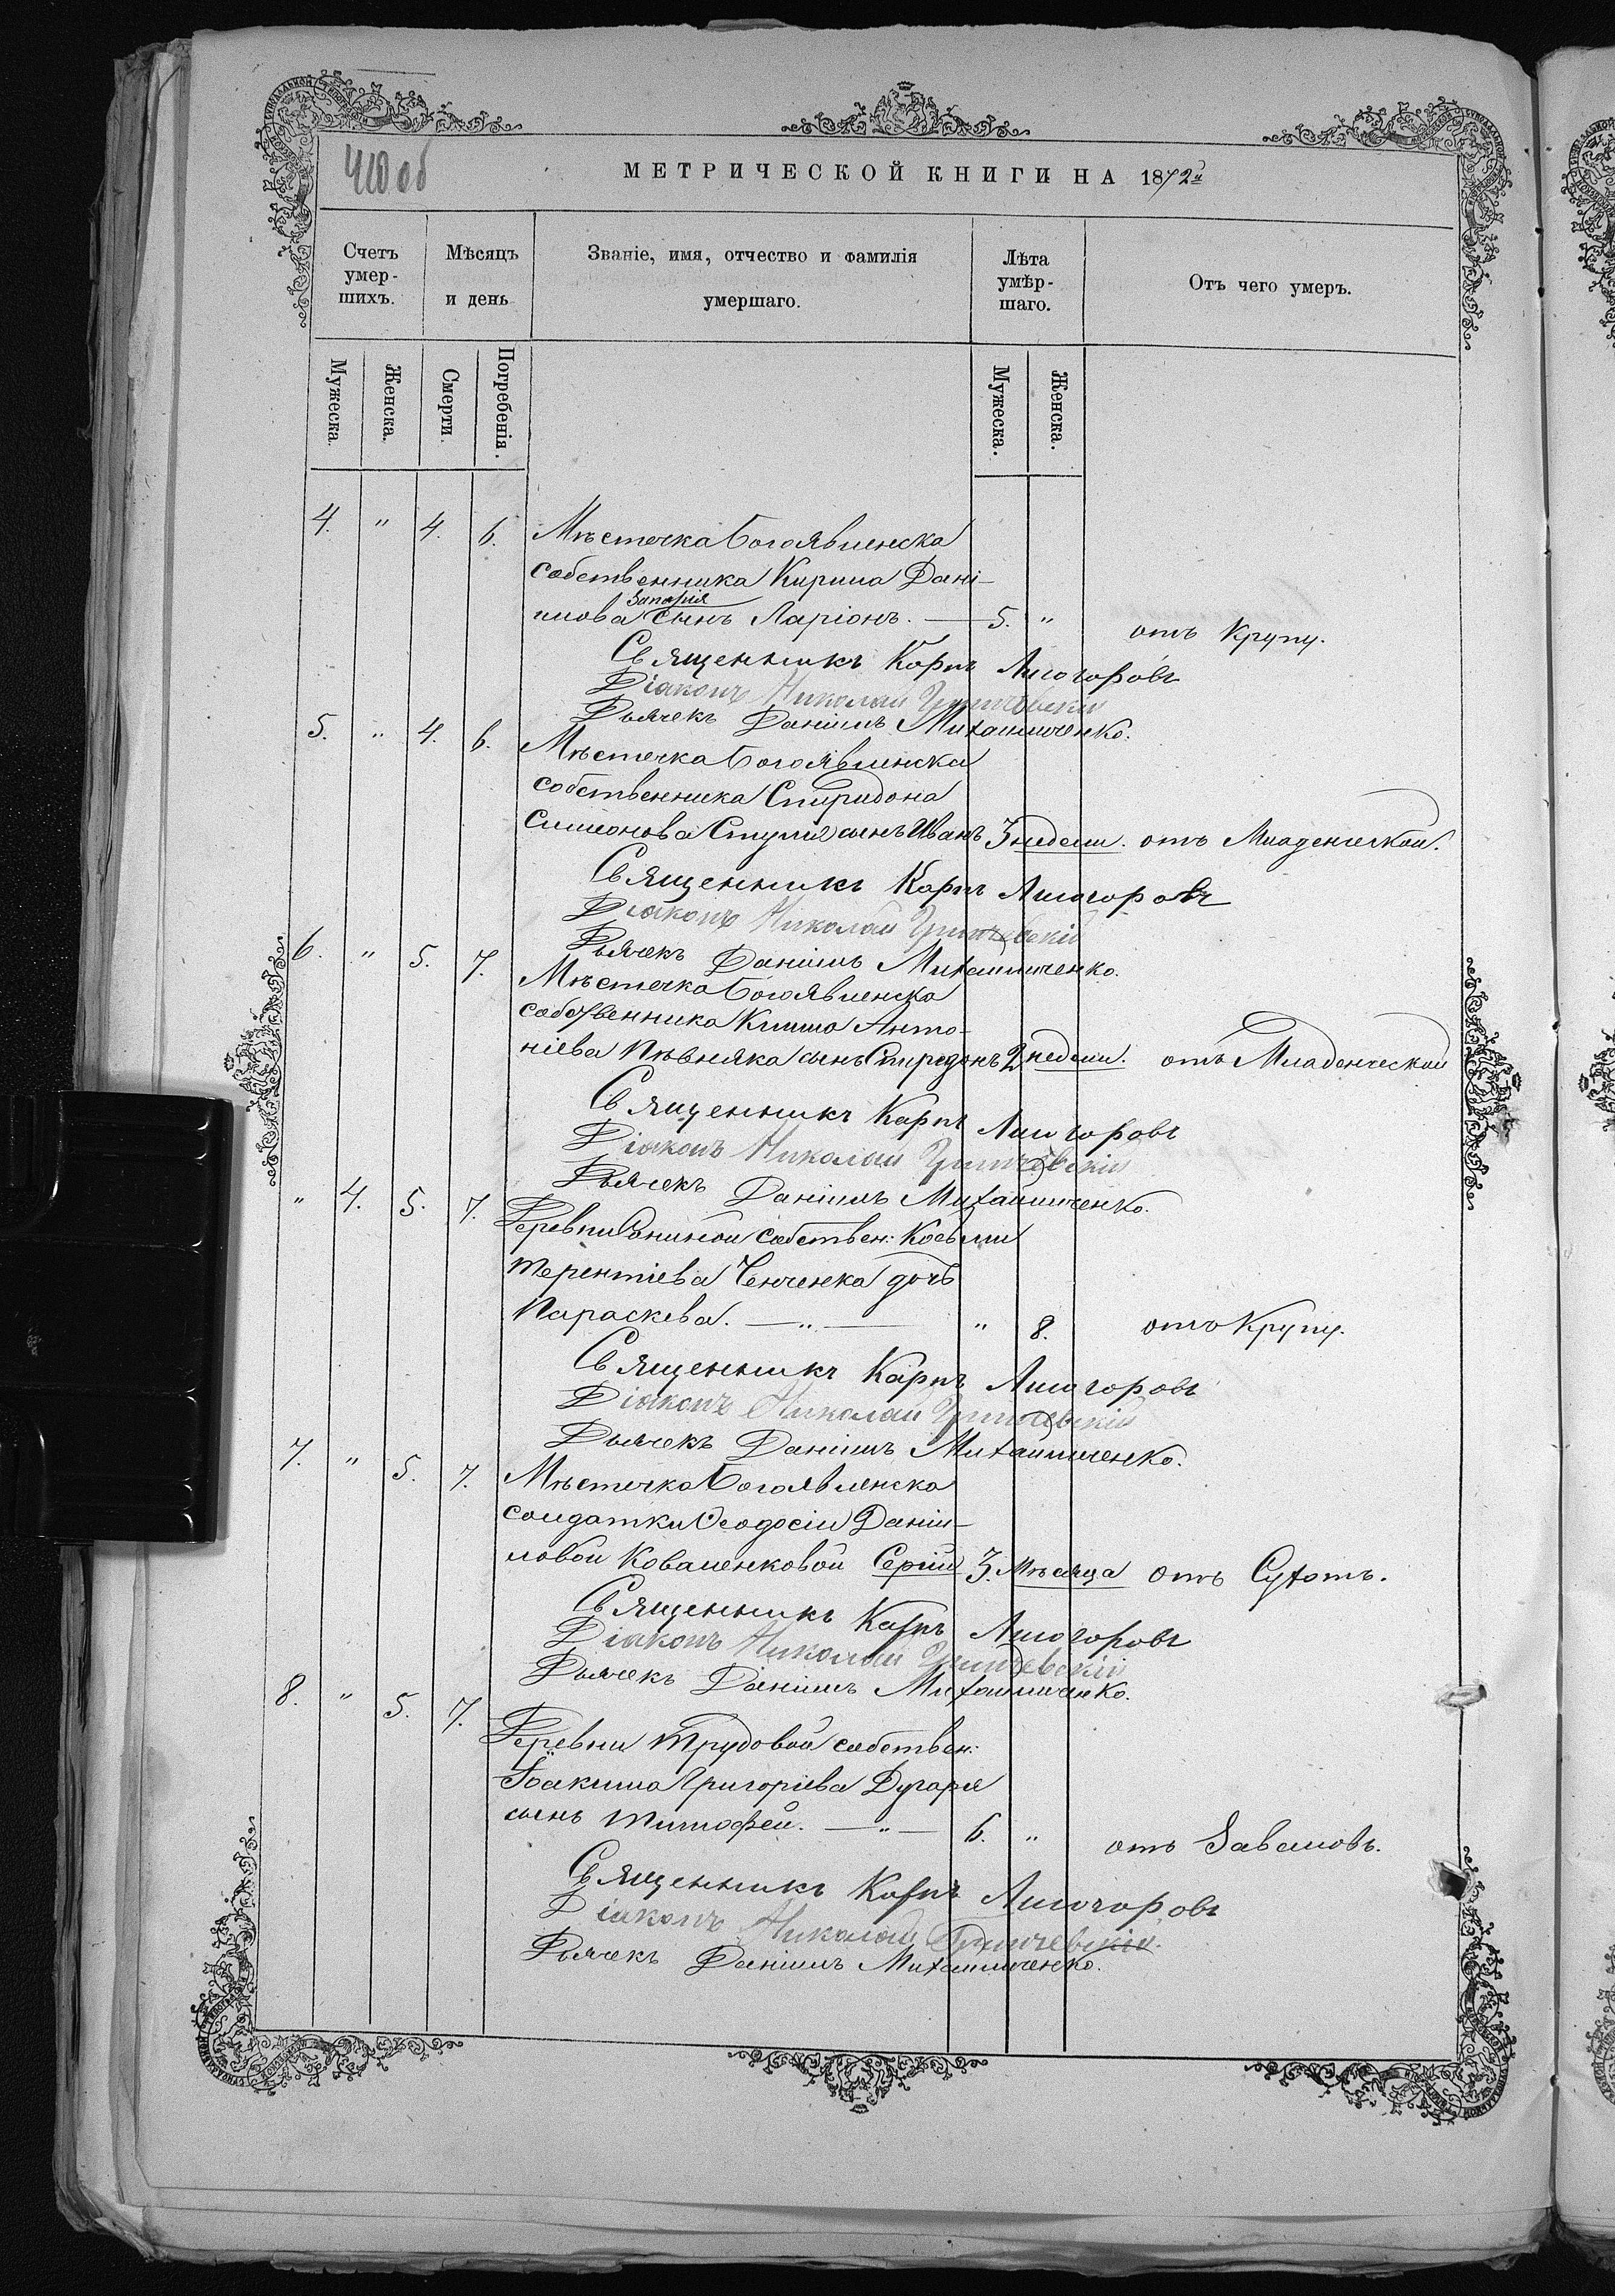 410 об
МЕТРИЧЕСКОЙ КНИГИ НА 1872й
Счетъ умер-шихъ.
Мѣсяцъ и день
Званіе, имя, отчество и фамилія умершаго.
Лѣта умѣр-шаго.
Отъ чего умеръ.
Мужеска.
Женска.
Смерти.
Погребенія.
Мужеска.
Женска.
4. " 4. 6. Мѣстечка Богоявленска
собственника Кирила Дані-
Запорія
лова сынъ Ларіонъ. — 5. " отъ Крупу.
Священникъ Карпъ Лисогоровъ
Діаконъ Николай
Дьячекъ Даніилъ Михайличенко.
5. " 4. 6. Мѣстечка Богоявленска
собственника Спиридона
Симіонова Стуля сынъ Иванъ 3 недели. отъ Младенческой.
Священникъ Карпъ Лисогоровъ
Діаконъ Николай
Дьячекъ Даніилъ Михайличенко.
6. " 5. 7. Мѣстечка Богоявленска
собственника Клима Анто-
ніева Пѣвняка сынъ Спиридонъ 2 недели. отъ Младенческой
Священникъ Карпъ Лисогоровъ
Діаконъ Николай
Дьячекъ Даніилъ Михайличенко.
" 4. 5. 7. Деревни собствен: Косьмы
Терентіева Ченченка дочь
Параскева. — " — " 8. отъ Крупу.
Священникъ Карпъ Лисогоровъ
Діаконъ Николай
Дьячекъ Даніилъ Михайличенко.
7. " 5. 7. Мѣстечка Богоявленска
солдатки Ѳеодосіи Даніи-
ловой Коваленковой Сергій 3. Мѣсяца отъ Сухотъ.
Священникъ Карпъ Лисогоровъ
Діаконъ Николай
Дьячекъ Даніилъ Михайличенко.
8. " 5. 7. Деревни Трудовой собствен:
Іоакима Григоріева Дугаря
сынъ Тимофей. — " — 6. " отъ Заваловъ.
Священникъ Карпъ Лисогоровъ
Діаконъ Николай
Дьячекъ Даніилъ Михайличенко.